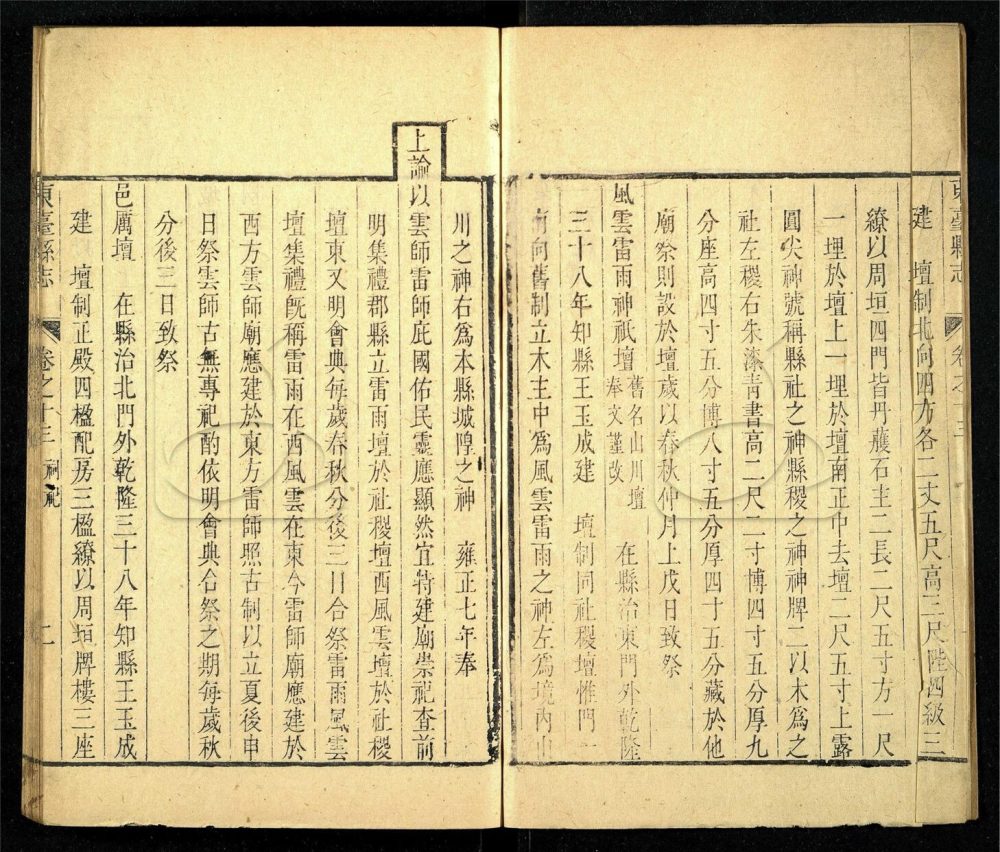 東臺縣志 卷之十三
建 壇制北向四方各二丈五尺高三尺陛四級三
繚以周垣四門皆丹雘石主二長二尺五寸方一尺
一埋於壇上一埋於壇南正中去壇二尺五寸上露
圓尖神號稱縣社之神縣稷之神神牌二以木爲之
社左稷右朱漆靑書高二尺二寸博四寸五分厚九
分座高四寸五分博八寸五分厚四寸五分藏於他
廟祭則設於壇歲以春秋仲月上戊日致祭
風雲雷雨神祇壇 舊名山川壇奉文謹改 在縣治東門外乾隆
三十八年知縣王玉成建 壇制同社稷壇惟門
南向舊制立木主中爲風雲雷雨之神左爲境內山
川之神右爲本縣城隍之神 雍正七年奉
上諭以雲師雷師庇國佑民靈應顯然宜特建廟崇祀查前
明集禮郡縣立雷雨壇於社稷壇西風雲壇於社稷
壇東又明會典每歲春秋分後三日合祭雷雨風雲
壇集禮旣稱雷雨在西風雲在東今雷師廟應建於
西方雲師廟應建於東方雷師照古制以立夏後申
日祭雲師古無專祀酌依明會典合祭之期每歲秋
分後三日致祭
邑厲壇 在縣治北門外乾隆三十八年知縣王玉成
建 壇制正殿四楹配房三楹繚以周垣牌樓三座
東臺縣志 卷之十三 祠祀 二